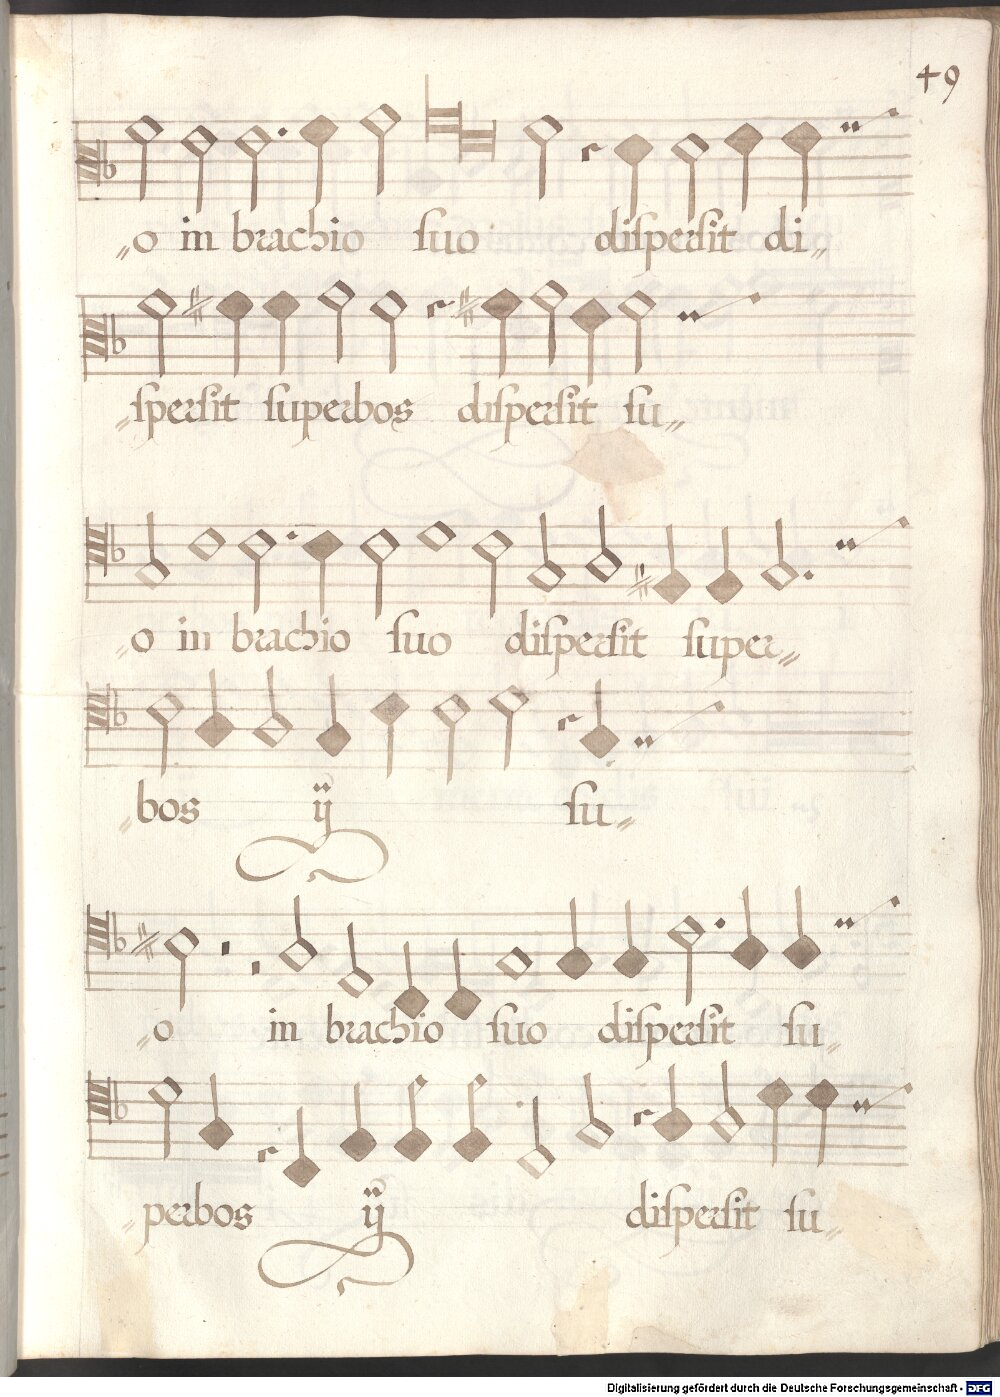 49
„o in brachio suo dispersit di„
„spersit superbos dispersit su„
„o in brachio suo dispersit super„
„bos ij su„
„o in brachio suo dispersit su„
„perbos ij dispersit su„
Digitalisierung gefördert durch die Deutsche Forschungsgemeinschaft - DFG